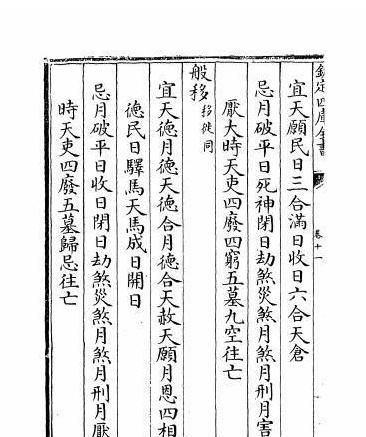 欽定四庫全書
卷十一
宜天願民日三合滿日收日六合天倉
忌月破平日死神閉日劫煞災煞月煞月刑月害
厭大時天吏四廢四窮五墓九空往亡
般移移徙同
宜天德月德天德合月德合天赦天願月恩四相
德民日驛馬天馬成日開日
忌月破平日收日閉日劫煞災煞月煞月刑月厭
時天吏四廢五墓歸忌往亡